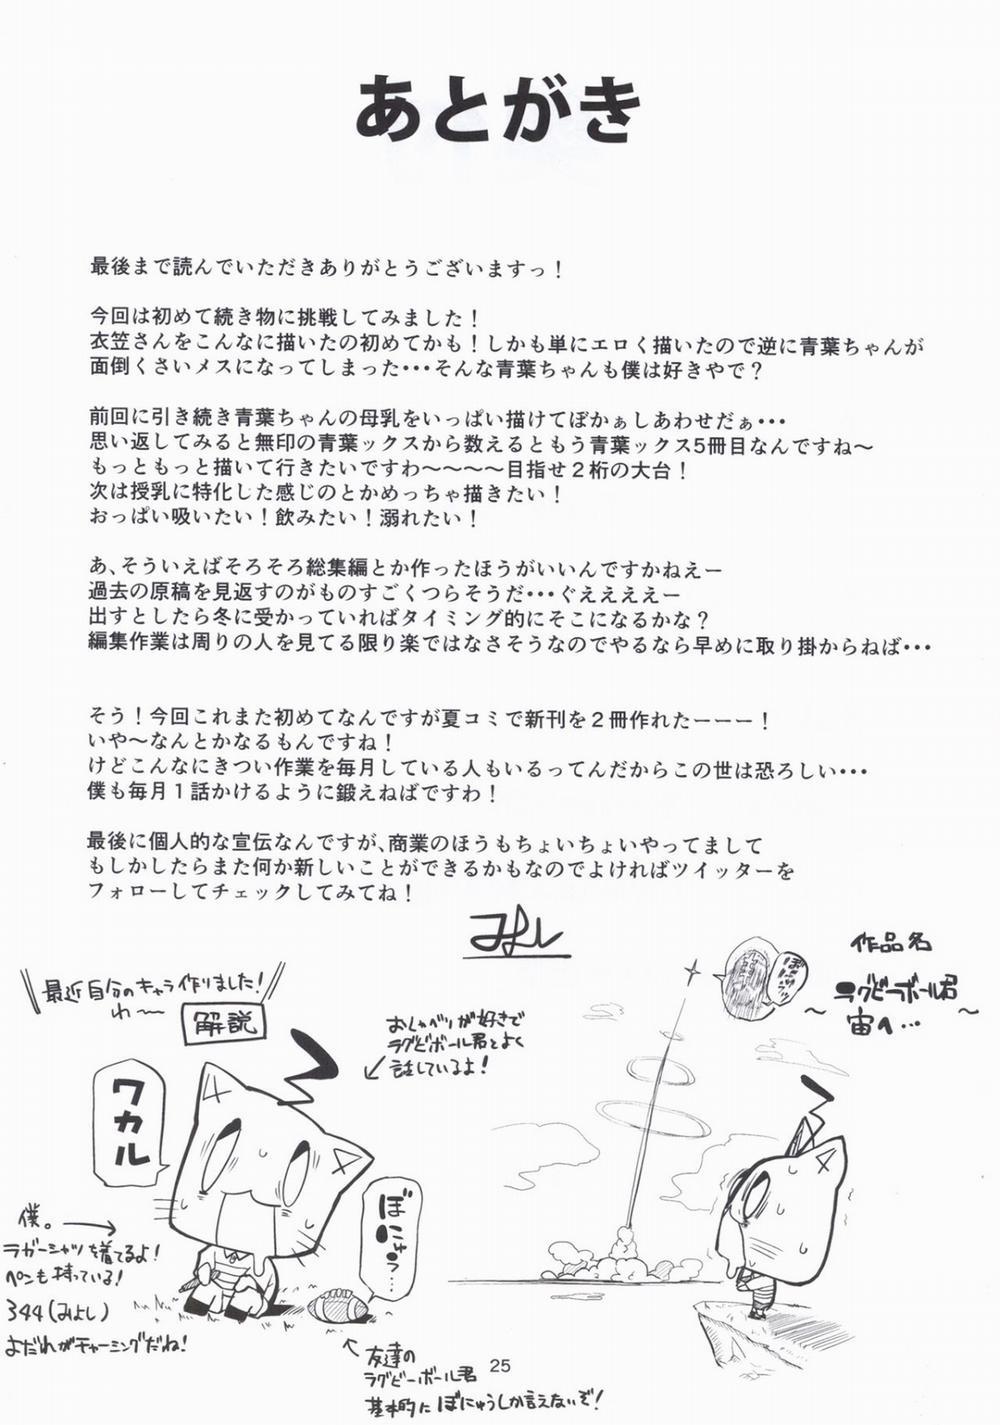 あとがき
最後まで読んでいただきありがとうございますっ！
今回は初めて続き物に挑戦してみました！
衣笠さんをこんなに描いたの初めてかも！しかも単にエロく描いたので逆に青葉ちゃんが
面倒くさいメスになってしまった･･･そんな青葉ちゃんも僕は好きやで？
前回に引き続き青葉ちゃんの母乳をいっぱい描けてぼかぁしあわせだぁ･･･
思い返してみると無印の青葉ックスから数えるともう青葉ックス5冊目なんですね～
もっともっと描いて行きたいですわ～～～～目指せ２桁の大台！
次は授乳に特化した感じのとかめっちゃ描きたい！
おっぱい吸いたい！飲みたい！溺れたい！
あ、そういえばそろそろ総集編とか作ったほうがいいんですかねえー
過去の原稿を見返すのがものすごくつらそうだ･･･ぐええええー
出すとしたら冬に受かっていればタイミング的にそこになるかな？
編集作業は周りの人を見てる限り楽ではなさそうなのでやるなら早めに取り掛からねば･･･
そう！今回これまた初めてなんですが夏コミで新刊を２冊作れたーーー！
いや～なんとかなるもんですね！
けどこんなにきつい作業を毎月している人もいるってんだからこの世は恐ろしい･･･
僕も毎月１話かけるように鍛えねばですわ！
最後に個人的な宣伝なんですが、商業のほうもちょいちょいやってまして
もしかしたらまた何か新しいことができるかもなのでよければツイッターを
フォローしてチェックしてみてね！
みよし
最近自分のキャラ作りました！
わ～
解説
ワカル
おしゃべりが好きで
ラグビーボール君とよく
話しているよ！
ぼにゅう?…
僕。
ラガーシャツを着てるよ！
ペンも持っている！
344(みよし)
よだれがチャーミングだね！
友達の
ラグビーボール君
基本的にぼにゅうしか言えないぞ！
作品名
～ラグビーボール君
宙へ…～
ぼにゅうっ
25